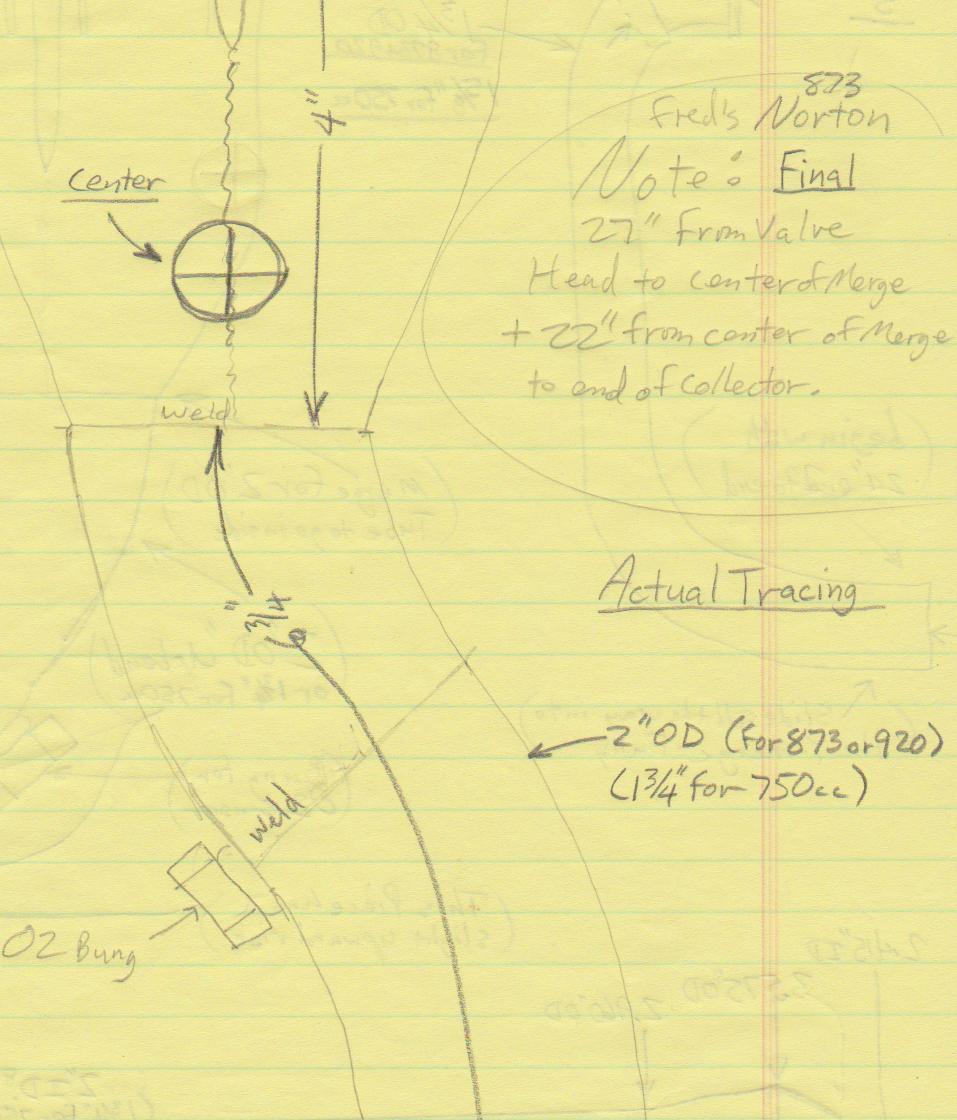 873
Fred's Norton
Note: Final
27" From Valve
Head to center of Merge
+ 22" from center of Merge
to end of Collector.
4"
Center
weld
6 3/4"
Actual Tracing
2" OD (For 873 or 920)
(1 3/4" for 750cc)
weld
O2 Bung